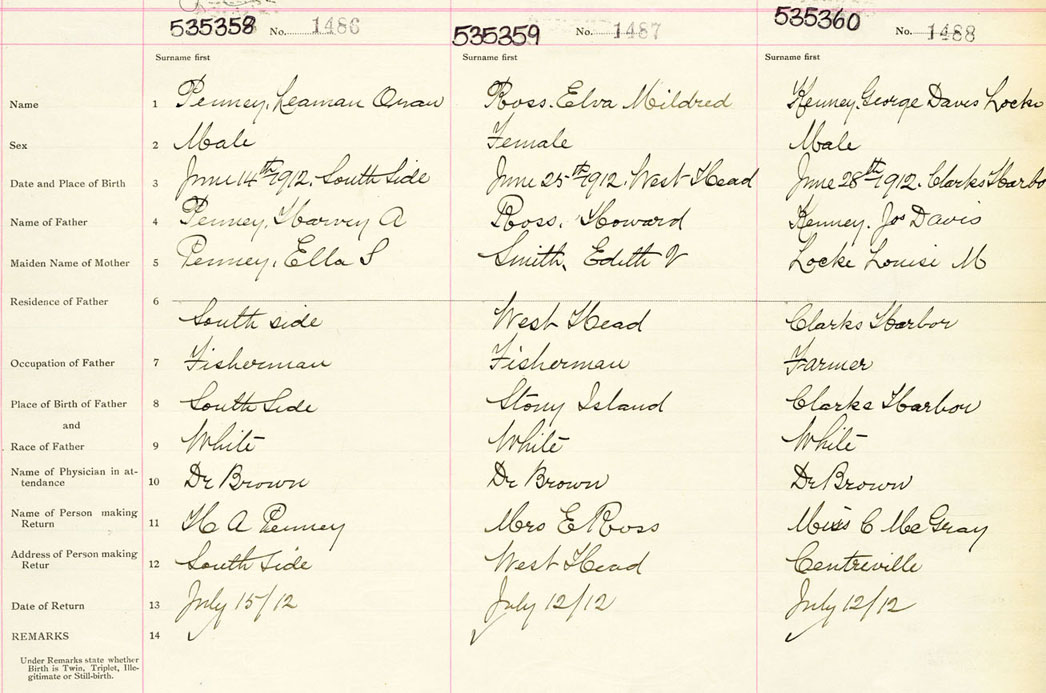 535358 No. 1486 535359 No. 1487 535360 No. 1488
Surname first Surname first Surname first
Name 1 Penney, Leaman Orran Ross. Elva Mildred Kenney. George Davis Locke
Sex 2 Male Female Male
Date and Place of Birth 3 June 14th 1912. South Side June 25th 1912. West Head June 28th 1912. Clarks Harbo
Name of Father 4 Penney, Harvey A Ross. Howard Kenney. Jos Davis
Maiden Name of Mother 5 Penney, Ella S Smith, Edith V Locke Louise M
Residence of Father 6
South side West Head Clarks Harbor
Occupation of Father 7 Fisherman Fisherman Farmer
Place of Birth of Father 8 South Side Stony Island Clarks Harbor
and
Race of Father 9 White White White
Name of Physician in at-
tendance 10 Dr Brown Dr Brown Dr Brown
Name of Person making
Return 11 H A Penney Mrs E Ross Miss C McGray
Address of Person making
Retur 12 South Side West Head Centreville
Date of Return 13 July 15/12 July 12/12 July 12/12
REMARKS 14
Under Remarks state whether
Birth is Twin, Triplet, Ille-
gitimate or Still-birth.